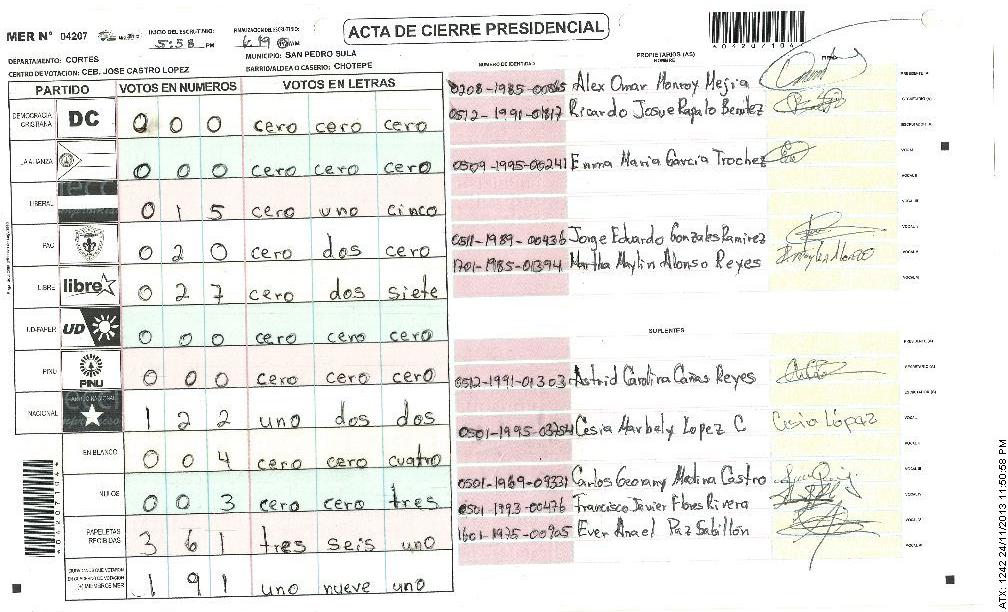 MER N° 04207
INICIO DEL ESCRUTINIO: 5:58 PM
FINALIZACION DEL ESCRUTINIO: 6:19 PM
ACTA DE CIERRE PRESIDENCIAL
04207104
DEPARTAMENTO: CORTES
MUNICIPIO: SAN PEDRO SULA
CENTRO DE VOTACION: CEB. JOSE CASTRO LOPEZ
BARRIO/ALDEA O CASERIO: CHOTEPE
PARTIDO VOTOS EN NUMEROS VOTOS EN LETRAS
DEMOCRACIA CRISTIANA DC 0 0 0 cero cero cero
LA ALIANZA 0 0 0 cero cero cero
LIBERAL 0 1 5 cero uno cinco
PAC 0 2 0 cero dos cero
LIBRE libre 0 2 7 cero dos siete
UD-FAPER UD 0 0 0 cero cero cero
PINU PINU 0 0 0 cero cero cero
NACIONAL PARTIDO NACIONAL 1 2 2 uno dos dos
EN BLANCO 0 0 4 cero cero cuatro
NULOS 0 0 3 cero cero tres
PAPELETAS RECIBIDAS 3 6 1 tres seis uno
1 9 1 uno nueve uno
NUMERO DE IDENTIDAD PROPIETARIOS (AS) NOMBRE FIRMA
0208-1985-00865 Alex Omar Monroy Mejria PRESIDENTE (A)
0512-1991-01817 Ricardo Josue Rapalo Benitez SECRETARIO (A)
ESCRUTADOR (A)
0509-1995-00241 Enma Maria Garcia Trochez VOCAL I
VOCAL II
VOCAL III
0511-1989-00436 Jorge Eduardo Gonzales Ramirez VOCAL V
1701-1985-01394 Martha Maylin Alonso Reyes
VOCAL VI
SUPLENTES
PRESIDENTE (A)
0512-1991-01303 Astrid Carolina Cañas Reyes SECRETARIO (A)
ESCRUTADOR (A)
0501-1995-03754 Cesia Marbely Lopez C Cesia López VOCAL I
VOCAL II
0501-1969-09331 Carlos Geovany Medina Castro VOCAL III
0501-1993-00476 Francisco Javier Flores Rivera
1601-1975-00905 Ever Anael Paz Sabillón VOCAL V
VOCAL VI
04207104
ATX: 1242 24/11/2013 11:50:58 PM